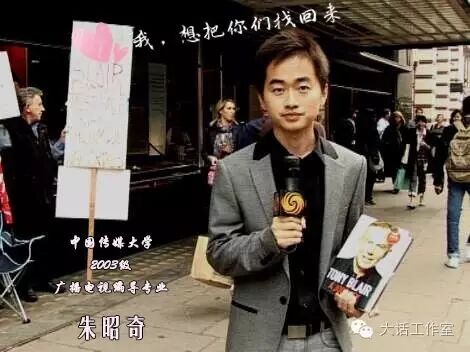 我，想把你们找回来
中国传媒大学
2003级
广播电视编导专业
朱昭奇
TONY BLAIR
大话工作室